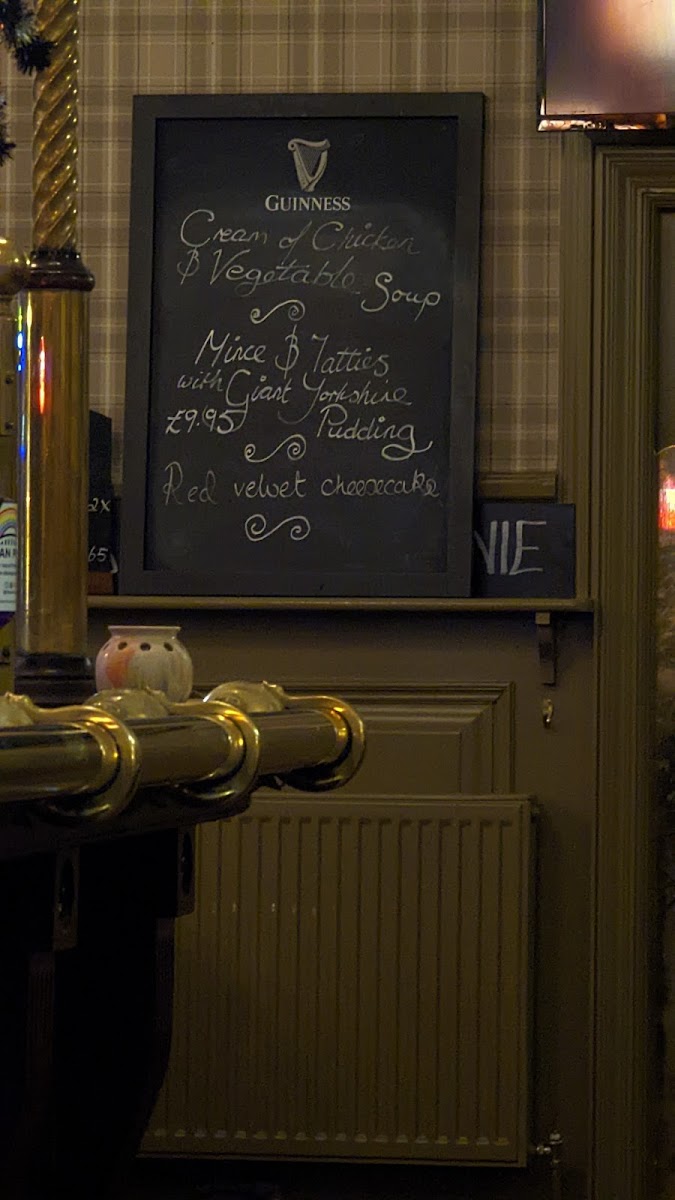 GUINNESS
Cream of Chicken
& Vegetable Soup
Mince & Tatties
with Giant Yorkshire
£9.95 Pudding
Red velvet cheesecake
2X
65
VIE
AN